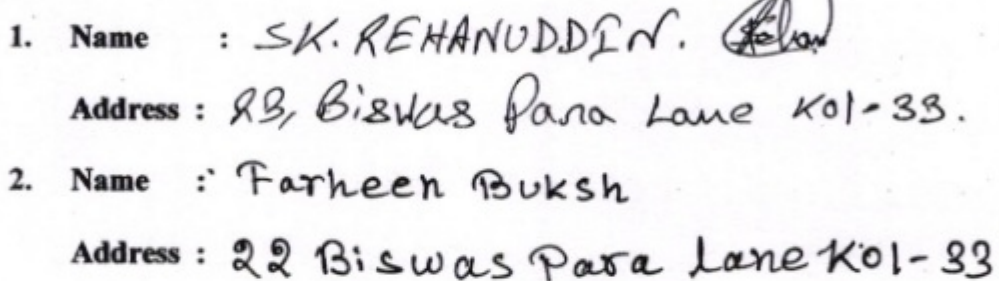 1. Name : SK. REHANUDDIN. Rehan
Address : 23, Biswas Para Lane Kol-33.
2. Name : Farheen Buksh
Address : 22 Biswas Para Lane Kol-33